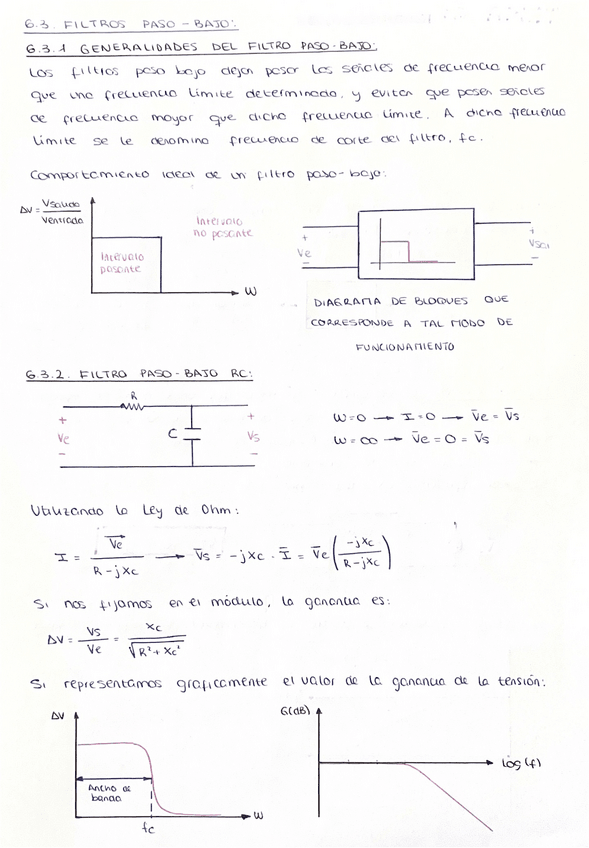 6.3. FILTROS PASO-BAJO:
6.3.1 GENERALIDADES DEL FILTRO PASO-BAJO:
Los filtros paso bajo dejan pasar las señales de frecuencia menor
que una frecuencia límite determinada, y evitan que pasen señales
de frecuencia mayor que dicha frecuencia límite. A dicha frecuencia
límite se le denomina frecuencia de corte del filtro, fc.
Comportamiento ideal de un filtro paso-bajo:
ΔV = Vsalida / Ventrada
Intervalo
no pasante
Intervalo
pasante
W
+
Ve
−
+
Vsal
−
DIAGRAMA DE BLOQUES QUE
CORRESPONDE A TAL MODO DE
FUNCIONAMIENTO
6.3.2. FILTRO PASO-BAJO RC:
R
+
Ve
−
C
+
Vs
−
W=0 → I=0 → V̄e = V̄s
W=∞ → V̄e = 0 = V̄s
Utilizando la Ley de Ohm:
I = Ve / (R-jXc) → V̄s = -jXc · Ī = V̄e (-jXc / (R-jXc))
Si nos fijamos en el módulo, la ganancia es:
ΔV = Vs / Ve = Xc / √(R² + Xc²)
Si representamos gráficamente el valor de la ganancia de la tensión:
ΔV
Ancho de
banda
fc
W
G(dB)
log(f)